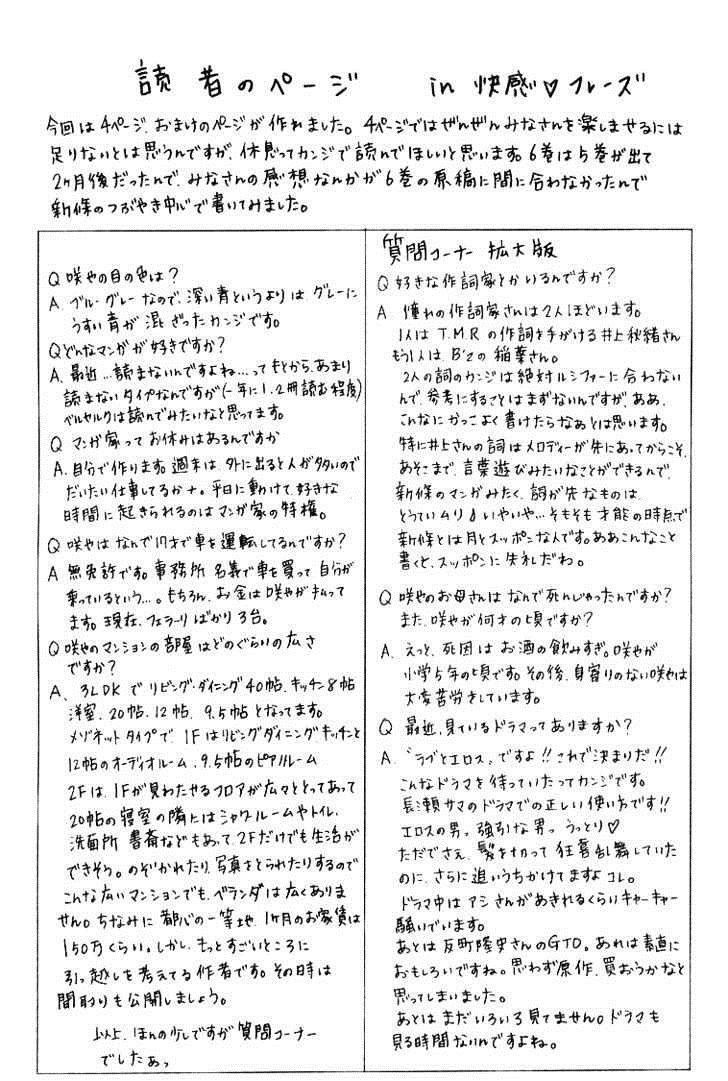 読者のページ in 快感♡フレーズ
今回は4ページ、おまけのページが作れました。4ページではぜんぜんみなさんを楽しませるには
足りないとは思うんですが、休息ってカンジで読んでほしいと思います。6巻は5巻が出て
2ヶ月後だったんで、みなさんの感想なんかが6巻の原稿に間に合わなかったんで
新條のつぶやき中心で書いてみました。
Q 咲也の目の色は?
A、ブルーグレーなので、深い青というよりはグレーに
うすい青が混ざったカンジです。
Q どんなマンガが好きですか?
A、最近…読まないんですよね…ってもとから、あまり
読まないタイプなんですが(一年に1、2冊読む程度)
ベルセルクは読んでみたいなと思ってます。
Q マンガ家ってお休みはあるんですか
A、自分で作ります。週末は、外に出ると人が多いので
だいたい仕事してるかナ。平日に動けて、好きな
時間に起きられるのはマンガ家の特権。
Q 咲也はなんで17才で車を運転してるんですか?
A 無免許です。事務所名義で車を買って自分が
乗っているという…。もちろん、お金は咲也が払って
ます。現在、フェラーリばかり3台。
Q 咲也のマンションの部屋はどのぐらいの広さ
ですか?
A、3LDKでリビング・ダイニング40帖、キッチン8帖
洋室、20帖、12帖、9.5帖となってます。
メゾネットタイプで、1Fはリビングダイニングキッチンと
12帖のオーディオルーム、9.5帖のピアノルーム
2Fは、1Fが見わたせるフロアが広々ととってあって
20帖の寝室の隣にはシャワールームやトイレ、
洗面所 書斎などもあって、2Fだけでも生活が
できそう。のぞかれたり、写真をとられたりするので
こんな広いマンションでも、ベランダは広くありま
せん。ちなみに都心の一等地、1ヶ月のお家賃は
150万くらい。しかし、もっとすごいところに
引っ越しを考えてる作者です。その時は
間取りも公開しましょう。
以上、ほんの少しですが質問コーナー
でしたぁっ
質問コーナー 拡大版
Q 好きな作詞家とかいるんですか?
A 憧れの作詞家さんは2人ほどいます。
1人はT.M.Rの作詞を手がける井上秋緒さん
もう1人はB'zの稲葉さん。
2人の詞のカンジは絶対ルシファーに合わない
んで、参考にすることはまずないんですが、ああ、
こんなにかっこよく書けたらなぁとは思います。
特に井上さんの詞はメロディーが先にあってからこそ、
あそこまで、言葉遊びみたいなことができるんで、
新條のマンガみたく、詞が先なものは、
とうていムリ♪いやいや…そもそも才能の時点で
新條とは月とスッポンな人です。ああこんなこと
書くと、スッポンに失礼だわ。
Q 咲也のお母さんはなんで死んじゃったんですか?
また、咲也が何才の頃ですか?
A、えっと、死因はお酒の飲みすぎ。咲也が
小学5年の頃です。その後、身寄りのない咲也は
大変苦労をしています。
Q 最近、見ているドラマってありますか?
A、「ラブとエロス」ですよ!!これで決まりだ!!
こんなドラマを待っていたってカンジです。
長瀬サマのドラマでの正しい使い方です!!
エロスの男っ 強引な男っ うっとり♡
ただでさえ、髪を切って狂喜乱舞していた
のに、さらに追いうちかけてますよコレ。
ドラマ中はアシさんがあきれるくらいキャーキャー
騒いでいます。
あとは反町隆史さんのGTO。あれは素直に
おもしろいですね。思わず原作、買おうかなと
思ってしまいました。
あとはまだいろいろ見てません。ドラマも
見る時間ないんですよね。